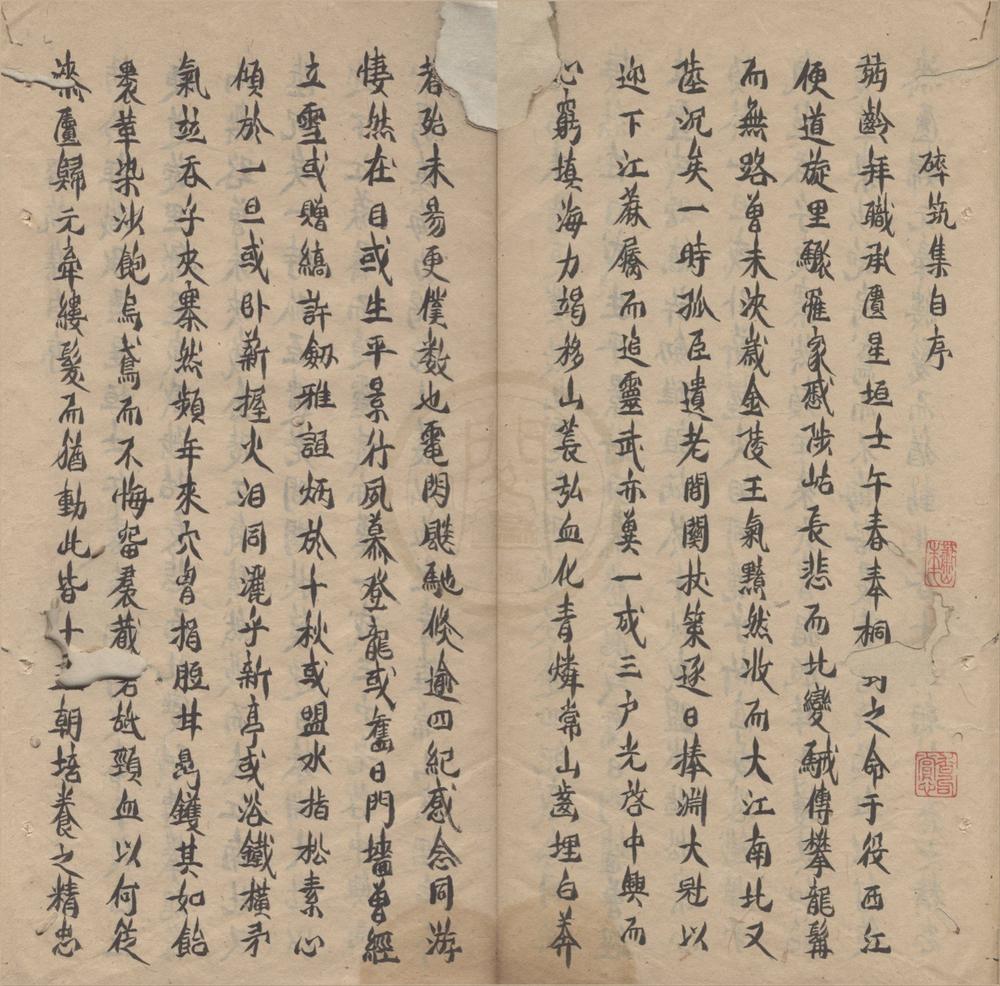 碎筑集自序
蒻齡拜職承匱星垣壬午春奉桐之命于役西江
便道旋里驟罹家慼陟岵長悲而北變馘傳攀龍髯
而無路曾未浹歲金陵王氣黯然收而大江南北又
陸沉矣一時孤臣遺老間關扙策逐日捧淵大尅以
迎下江蔴屬而追靈武亦冀一成三户光啓中興而
心窮填海力竭移山萇弘血化青憐常山齒埋白莽
者殆未易更僕数也電閃飈馳倏逾四紀感念同游
悽然在目或生平景行夙慕登龍或舊日門墻曾經
立雪或贈縞許劒雅誼炳於十秋或盟水指松素心
傾於一旦或卧薪握火泪同灑乎新亭或浴鐵橫矛
氣竝吞乎夾寨然頻年來穴胷捐脰甘鼎鑊其如飴
裹革染沙飽烏鳶而不悔畱裹蔵舐頸血以何從
漆匱歸元牽縷髮而猶動此皆十朝培養之精忠